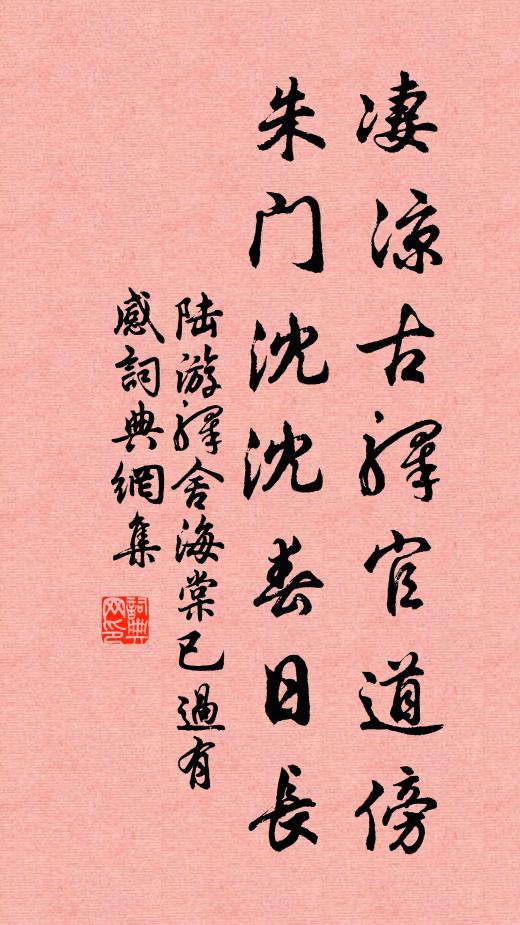 凄涼古驛官道傍
朱門沈沈春日長
陸游驛舍海棠已過有
感詞典網集
詞典
网印